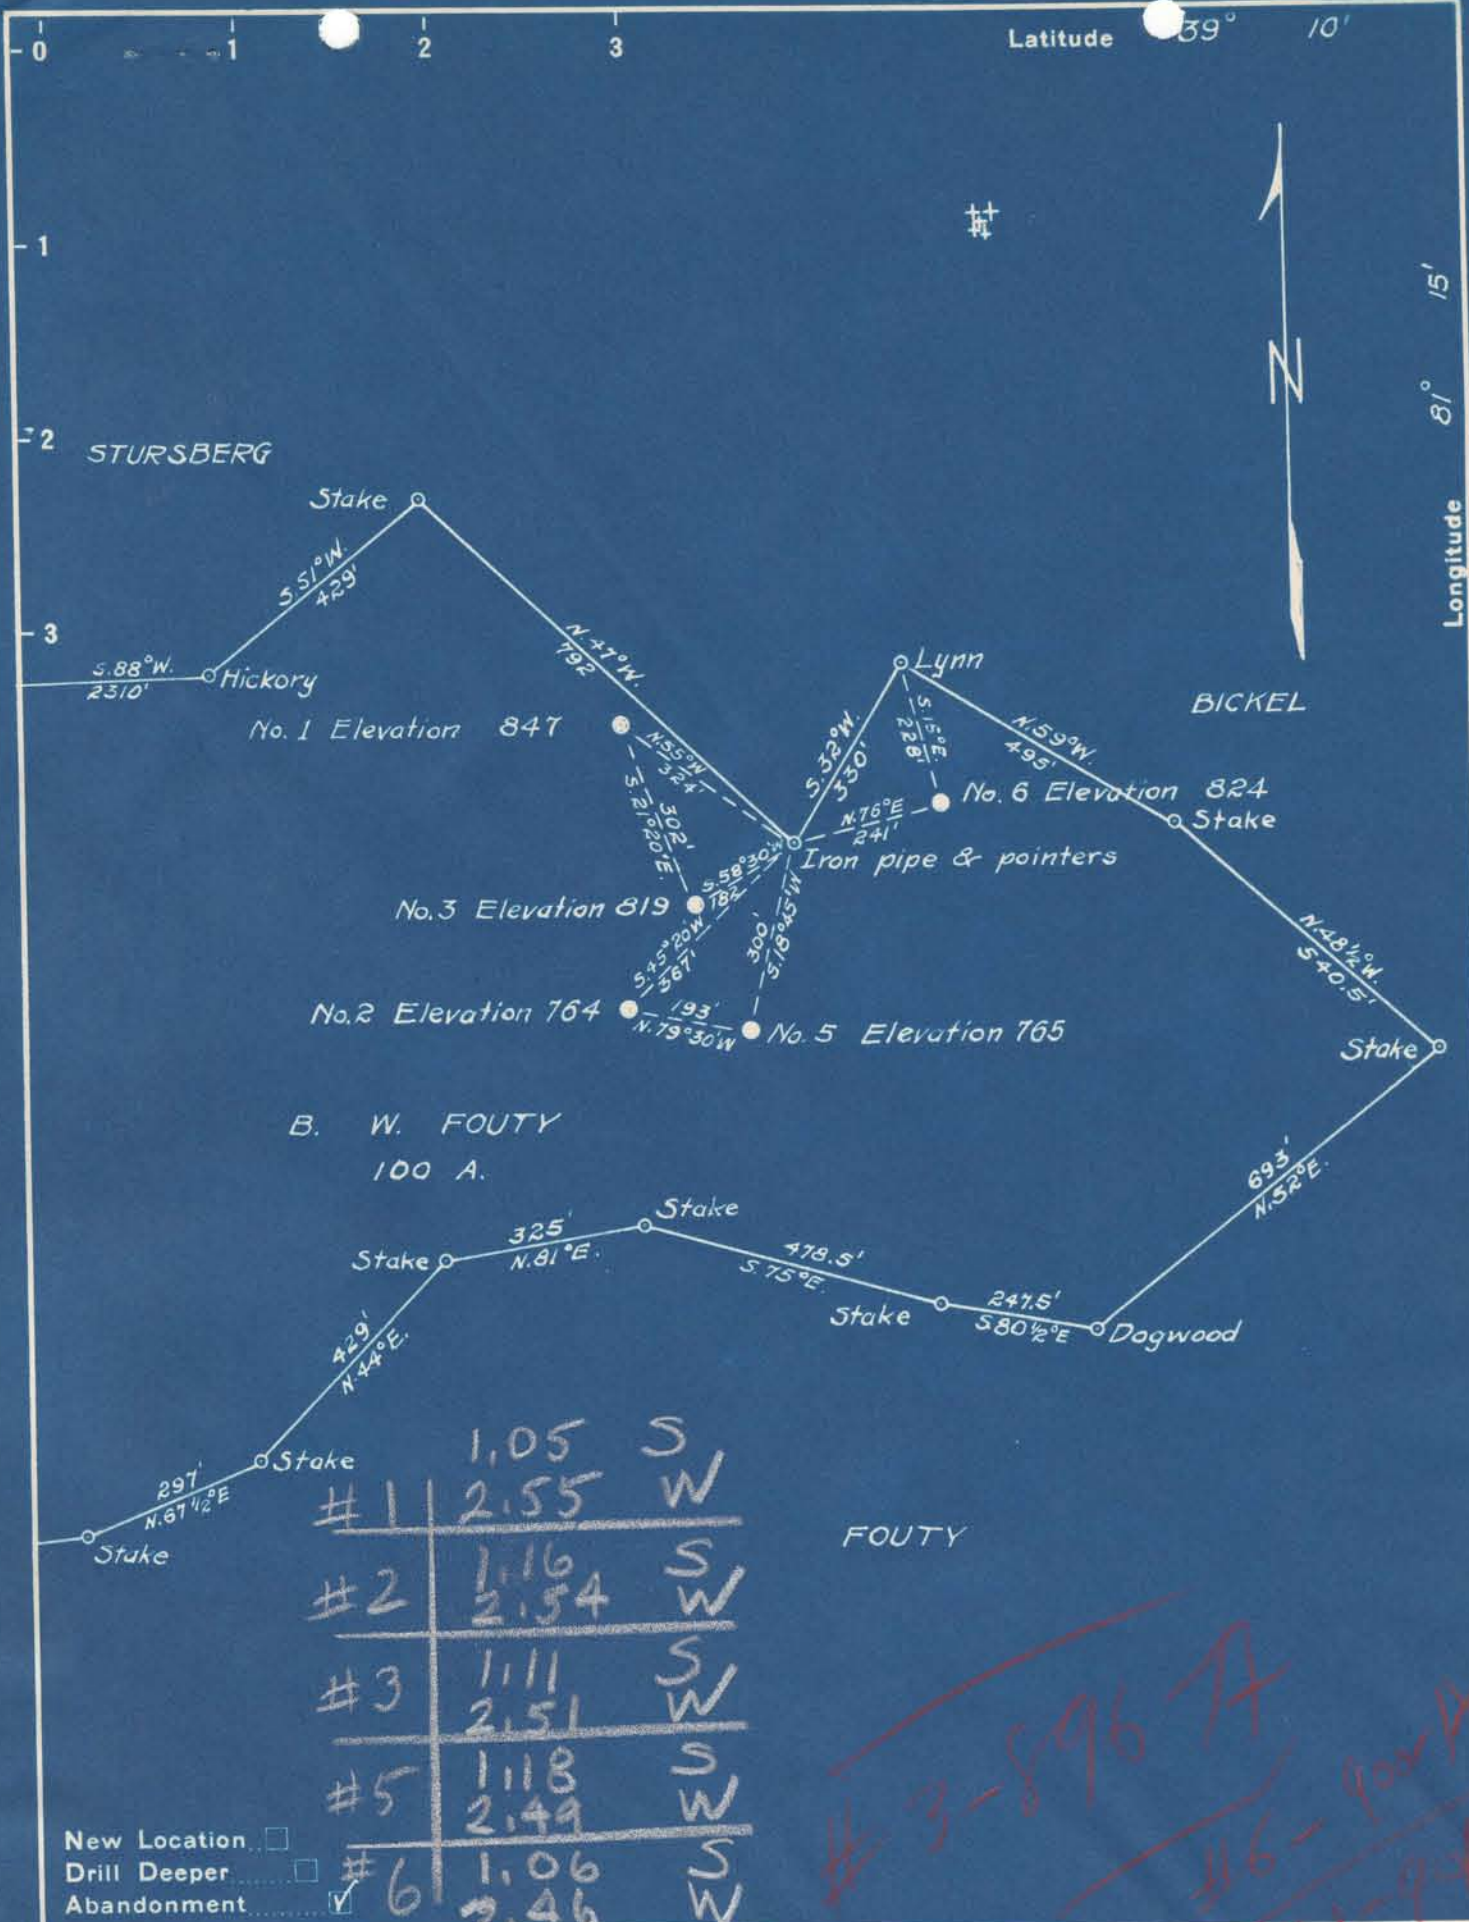 0 1 2 3 Latitude 39° 10'
1
2
3
Longitude 81° 15'
N
STURSBERG
Stake
S.51°W.
429'
S.88°W.
2310'
Hickory
N.47°W.
792
Lynn
BICKEL
No. 1 Elevation 847
N.55°W
324'
S.32°W.
330'
S.15°E.
228'
N.59°W.
495'
No. 6 Elevation 824
Stake
N.76°E
241'
Iron pipe & pointers
302'
S.21°20'E.
S.58°30'W
182'
No.3 Elevation 819
S.45°20'W
367'
300'
S.18°45'W
N.48½°W.
540.5'
No.2 Elevation 764
193'
N.79°30'W
No. 5 Elevation 765
Stake
B. W. FOUTY
100 A.
693'
N.52°E.
Stake
325'
N.81°E.
Stake
478.5'
S.75°E.
Stake
247.5'
S.80½°E
Dogwood
429'
N.44°E.
Stake
297'
N.67½°E
Stake
FOUTY
1.05 S
#1 2.55 W
1.16 S
#2 2.54 W
1.11 S
#3 2.51 W
1.18 S
#5 2.49 W
1.06 S
#6 2.46 W
# 3-896 A
#6-900 A
New Location
Drill Deeper
Abandonment